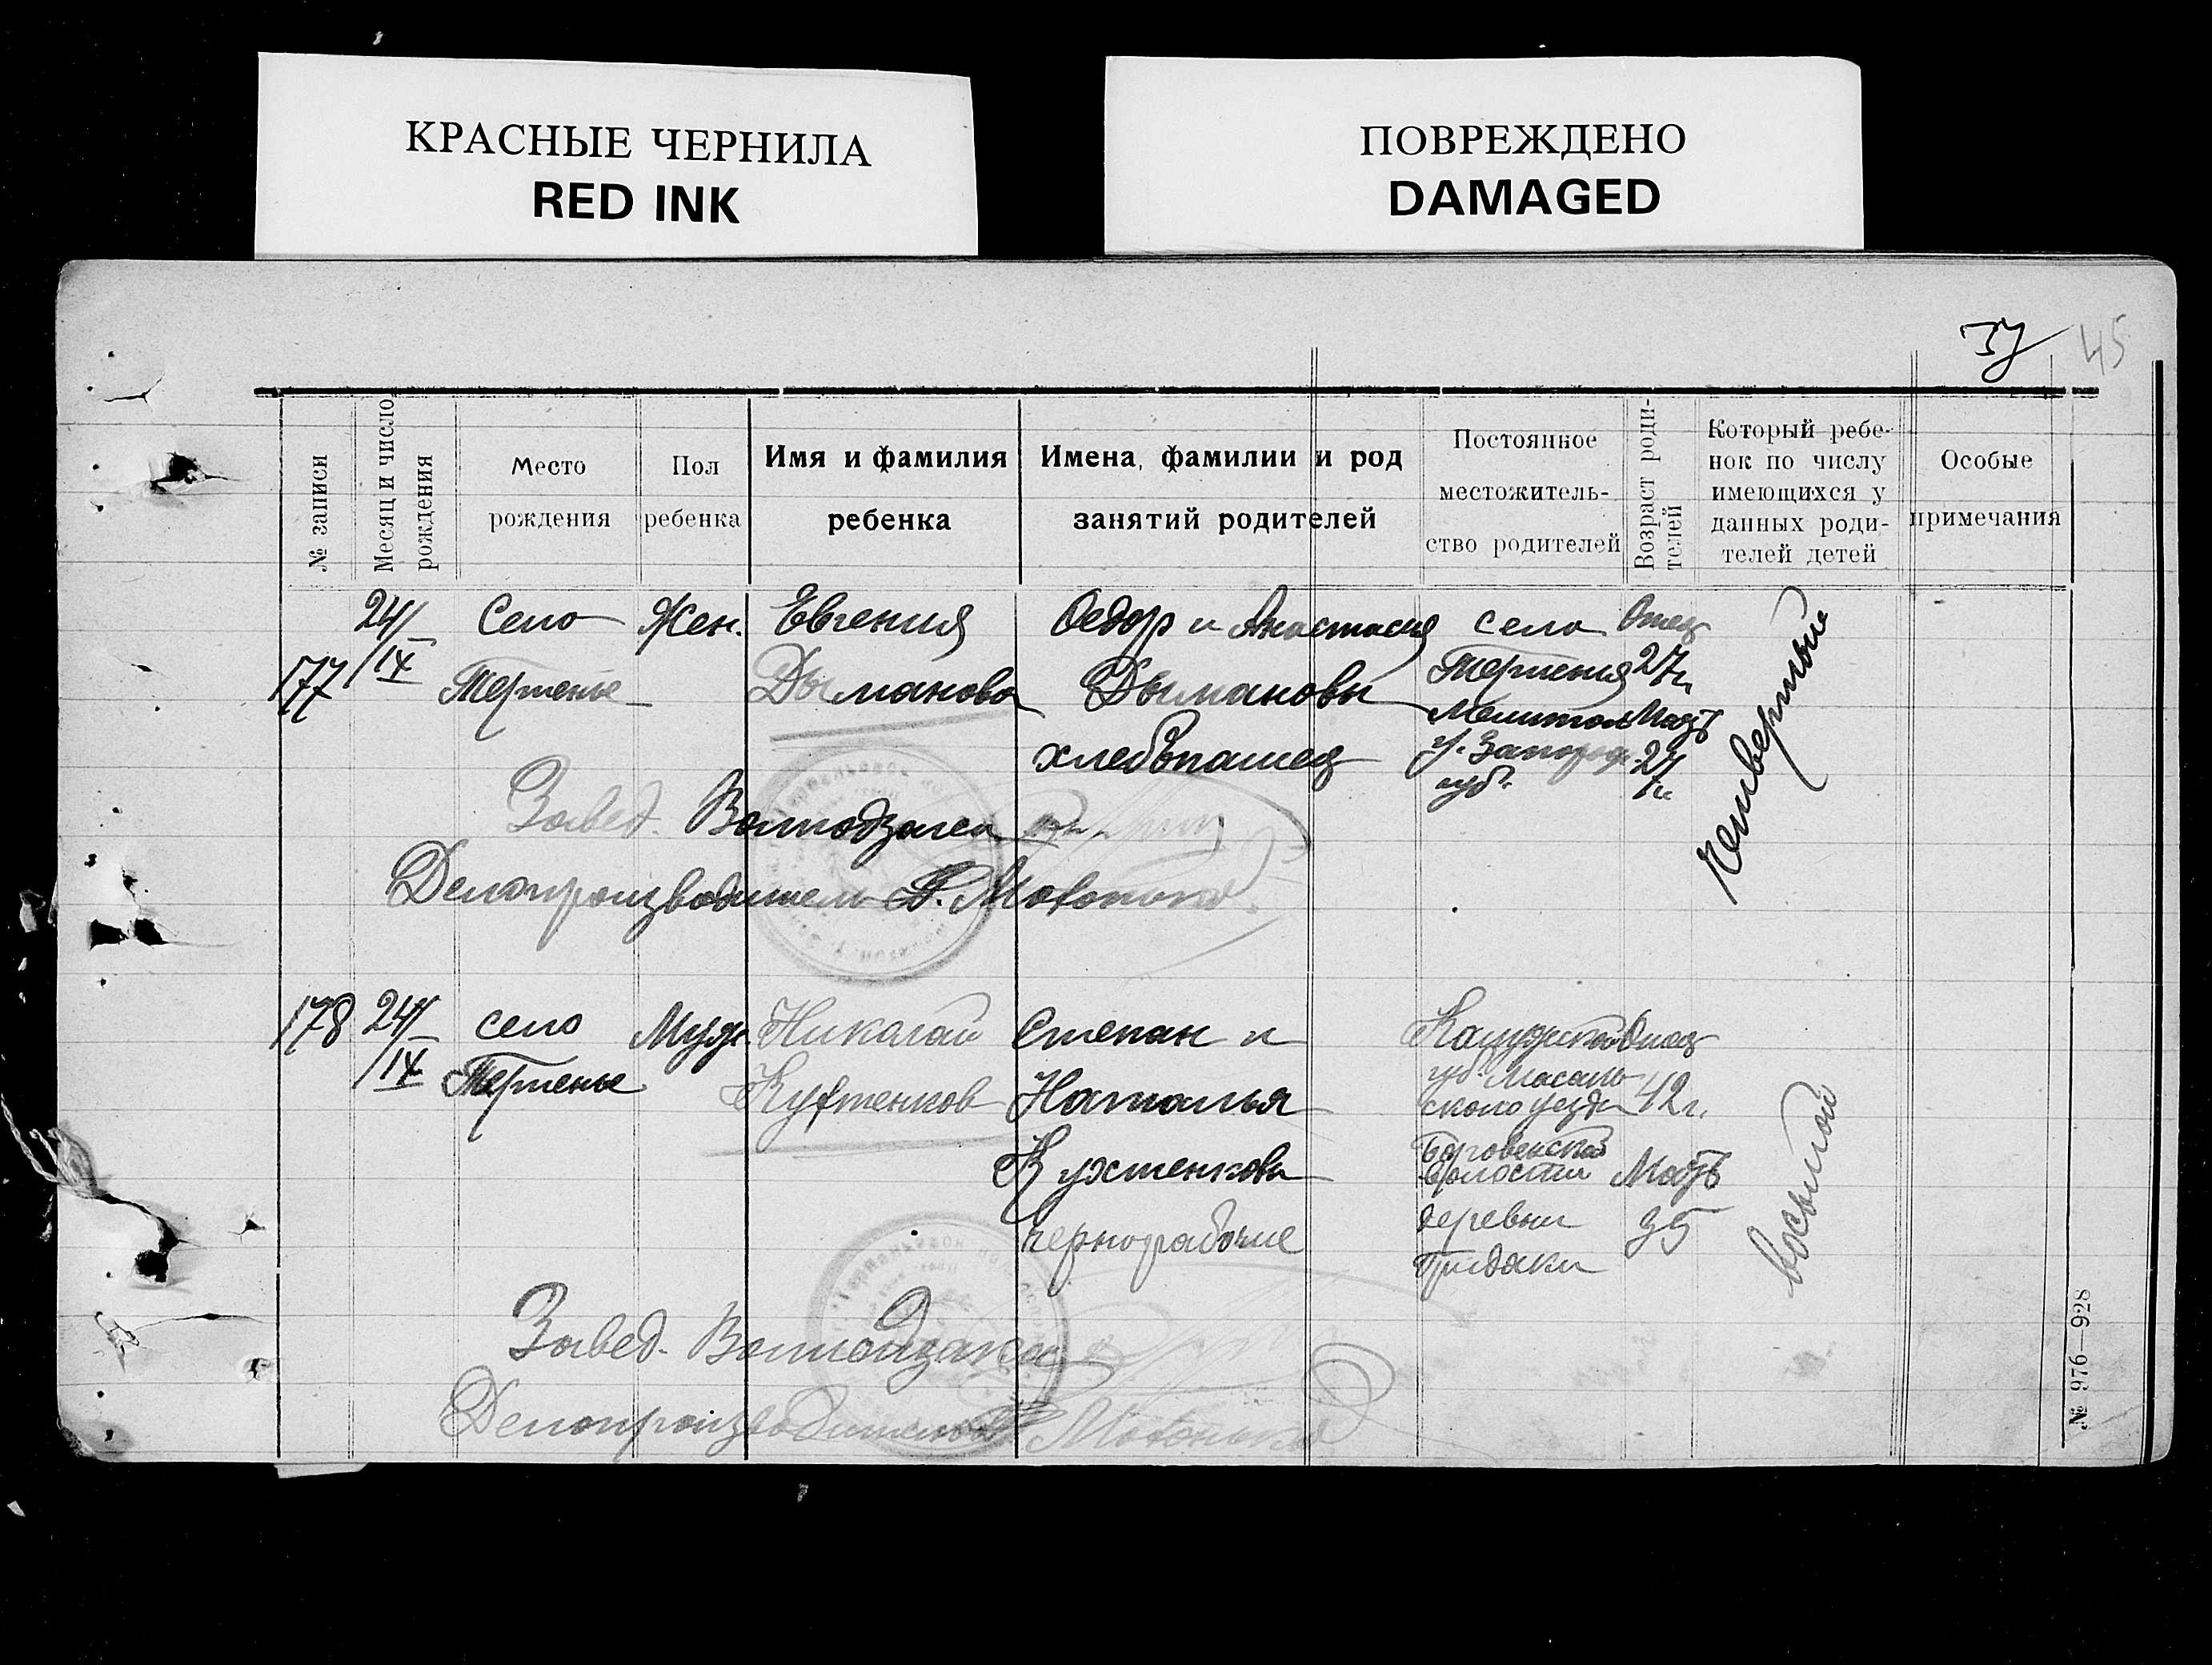 КРАСНЫЕ ЧЕРНИЛА
RED INK
ПОВРЕЖДЕНО
DAMAGED
37
45
№ записи
Месяц и число рождения
Место рождения
Пол ребенка
Имя и фамилия ребенка
Имена, фамилии и род занятий родителей
Постоянное местожитель-
ство родителей
Возраст роди-
телей
Который ребе-
нок по числу
имеющихся у
данных роди-
телей детей
Особые
примечания
177
24/IX
Село
Терпенье
Жен.
Евгения
Дыманова
Федор и Анастасия
Дымановы
хлебопашец
село
Терпения
Мелитоп
у. Запорож.
губ.
Отец
27 г.
Мать
27 г.
четвертый
Завед. Волподзагса
Делопроизводитель
178
24/IX
село
Терпенье
Муж.
Николай
Кухтенков
Степан и
Наталья
Кухтенковы
чернорабочие
Калужской
губ. Масаль-
ского уезда
волости
деревни
Отец
42 г.
Мать
35
восьмой
Завед. Волподзагса
Делопроизводитель
№ 976—928